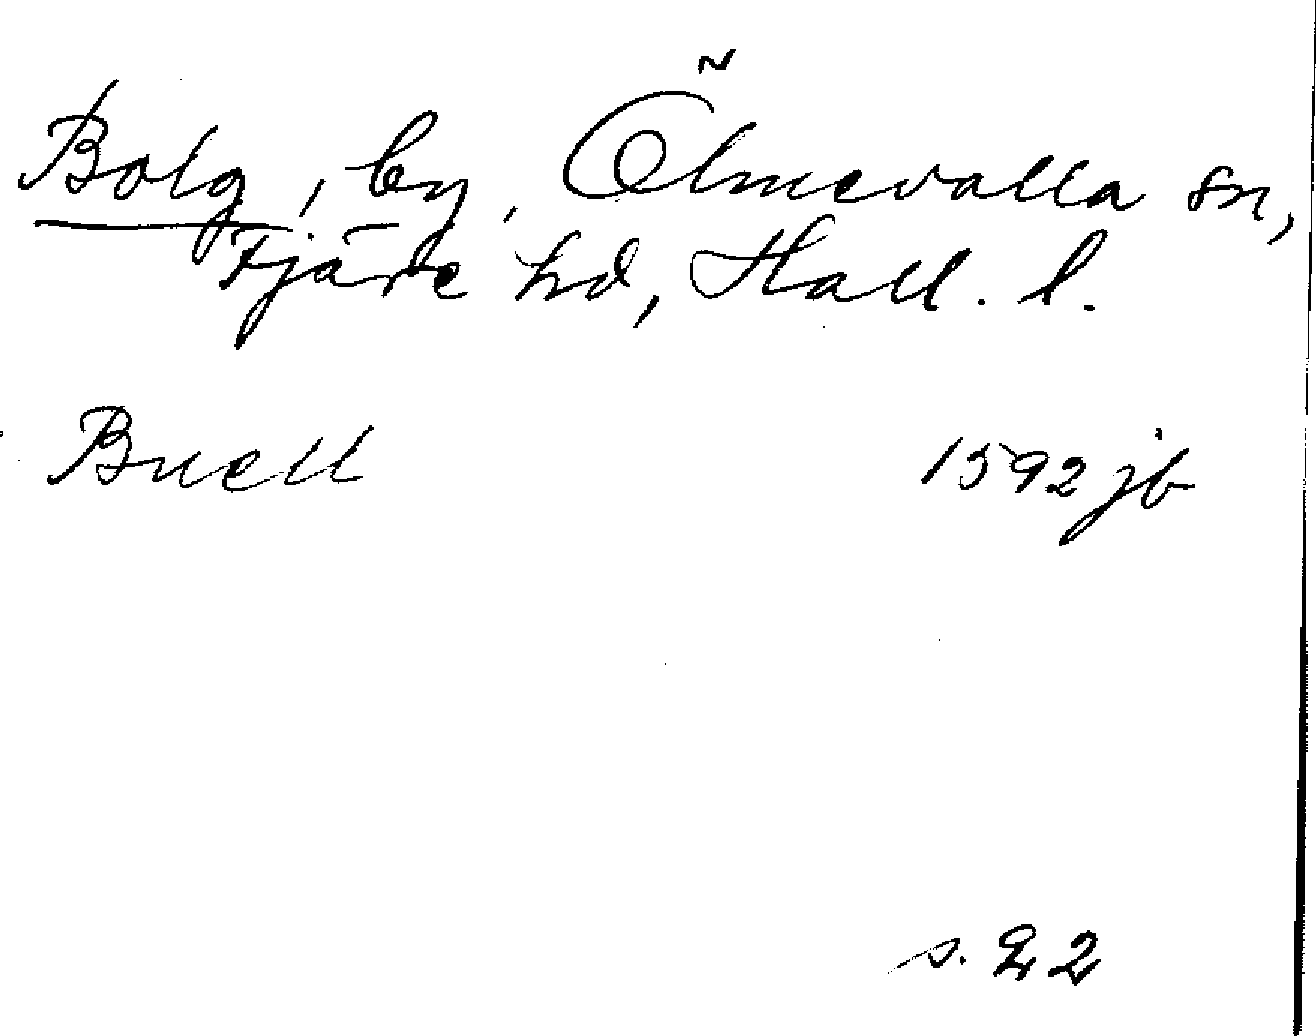 Bolg, by, Ölmevalla sn,
Fjäre hd, Hall. l.
Buell 1592 jb
s. 22